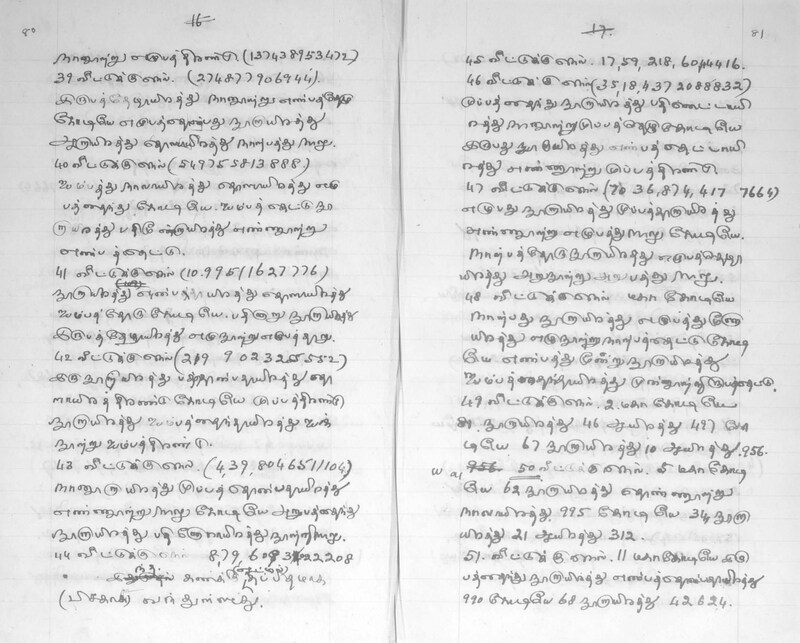 80
16
நானூற்று எழுபத்திரண்டு (137438953472)
39 வீட்டுக்கு எல். (274877906944).
இருபத்தேழாயிரத்து நானூற்று எண்பத்தேழு
கோடியே எழுபத்தொன்பது நூறாயிரத்து
ஆறாயிரத்து தொளாயிரத்து நாற்பத்து நாலு.
40 வீட்டுக்கு எல் (549755813888)
ஐம்பத்து நாலாயிரத்து தொளாயிரத்து எழு
பத்தைந்து கோடியே. ஐம்பத்தெட்டு நூ
றாயிரத்து பதிமூன்றாயிரத்து எண்ணூற்று
எண்பத்தெட்டு.
41 வீட்டுக்கு எல் (10.99511627776)
நூறாயிரத்து ஒன்பதாயிரத்து தொளாயிரத்து
ஐம்பத்தோரு கோடியே. பதினாறு நூறாயிரத்து
இருபத்தேழாயிரத்து எழுநூற்று எழுபத்தாறு.
42 வீட்டுக்கு எல் (219 9 023255552)
இரு நூறாயிரத்து பத்தொன்பதாயிரத்து தொ
ளாயிரத்திரண்டு கோடியே முப்பத்திரண்டு
நூறாயிரத்து ஐம்பத்தைந்தாயிரத்து ஐந்
நூற்று ஐம்பத்திரண்டு.
43 வீட்டுக்கு எல். (4,39,8046511104)
நானூறாயிரத்து முப்பத்தொன்பதாயிரத்து
எண்ணூற்று நாலு கோடியே அறுபத்தைந்து
நூறாயிரத்து பதினோராயிரத்து நூற்றிநாலு.
44 வீட்டுக்கு எல் 8,79, 609 3022208
கணக்கு தப்பிதமாக
(பிசகாக) வளர்ந்துள்ளது.
17
81
45 வீட்டுக்கு எல். 17,59, 218, 6044416.
46 வீட்டுக்கு எல் (35,18,437 2088832)
முப்பத்தைந்து நூறாயிரத்து பதினெட்டாயி
ரத்து நானூற்று முப்பத்தேழு கோடியே
இருபது நூறாயிரத்து எண்பத்தெட்டாயி
ரத்து எண்ணூற்று முப்பத்திரண்டு.
47 வீட்டுக்கு எல் (70 36,874, 417 7664)
எழுபது நூறாயிரத்து முப்பத்தாறாயிரத்து
எண்ணூற்று எழுபத்து நாலு கோடியே.
நாற்பத்தோரு நூறாயிரத்து எழுபத்தேழா
யிரத்து அறுநூற்று அறுபத்து நாலு.
48 வீட்டுக்கு எல் மகா கோடியே
நாற்பது நூறாயிரத்து எழுபத்து மூனா
யிரத்து எழுநூற்று நாற்பத்தெட்டு கோடி
யே எண்பத்து மூன்று நூறாயிரத்து
ஐம்பத்தைந்தாயிரத்து முன்னூற்றி இருபத்தெட்டு.
49 வீட்டுக்கு எல். 2 மகா கோடியே
81. நூறாயிரத்து 46 ஆயிரத்து 497 கோ
டியே 67 நூறாயிரத்து 10 ஆயிரத்து. 956.
956. 50 வீட்டுக்கு எல். 5 மகா கோடி
யே 62 நூறாயிரத்து தொண்ணூற்று
நாலாயிரத்து. 995 கோடியே 34 நூறா
யிரத்து 21 ஆயிரத்து 312.
51. வீட்டுக்கு எல். 11 மகாகோடியே இரு
பத்தைந்து நூறாயிரத்து எண்பத்தொன்பதாயிரத்து
990 கோடியே 68 நூறாயிரத்து 42624.